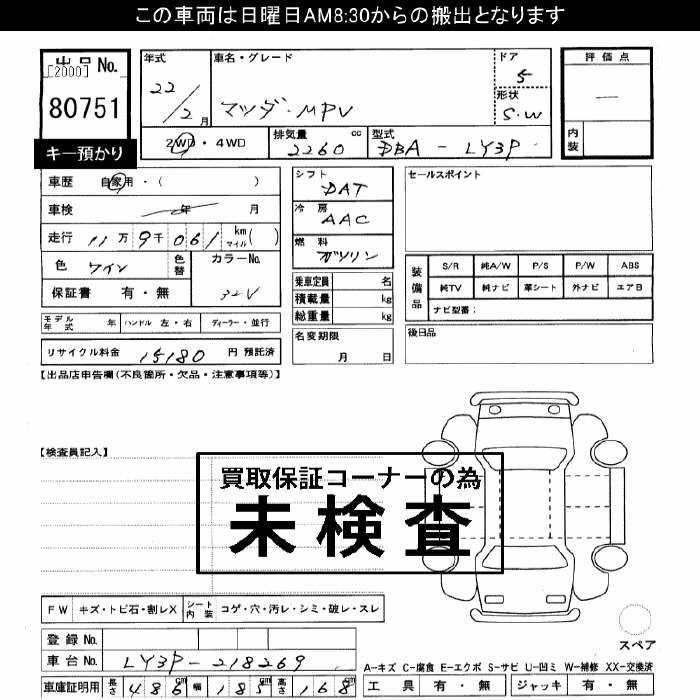 この車両は日曜日AM8:30からの搬出となります
出品 No.
[2000]
80751
キー預かり
年式
22/2月
車名・グレード
マツダ・MPV
ドア
5
形状
S.W
評価点
—
内装
2WD・4WD
排気量 cc
2260
型式
DBA - LY3P
車歴 自家用・( )
車検 年 月
走行 11万9千061 km マイル ( )
色 ワイン 色替
カラーNo.
32V
保証書 有・無
シフト
DAT
冷房
AAC
燃料
ガソリン
乗車定員 名
積載量 kg
総重量 kg
セールスポイント
装備品
S/R 純A/W P/S P/W ABS
純TV 純ナビ 革シート 外ナビ エアB
ナビ型番:
モデル年式 年 ハンドル 左・右 ディーラー・並行
リサイクル料金 15180 円 預託済
名変期限
月 日
後日品
【出品店申告欄(不良箇所・欠品・注意事項等)】
【検査員記入】
買取保証コーナーの為
未検査
FW キズ・トビ石・割レX シート内装 コゲ・穴・汚レ・シミ・破レ・スレ
登録 No.
車台 No. LY3P-218269
車庫証明用 長さ 486cm 幅 185cm 高さ 168cm
スペア
A-キズ C-腐食 E-エクボ S-サビ U-凹ミ W-補修 XX-交換済
工具 有・無 ジャッキ 有・無